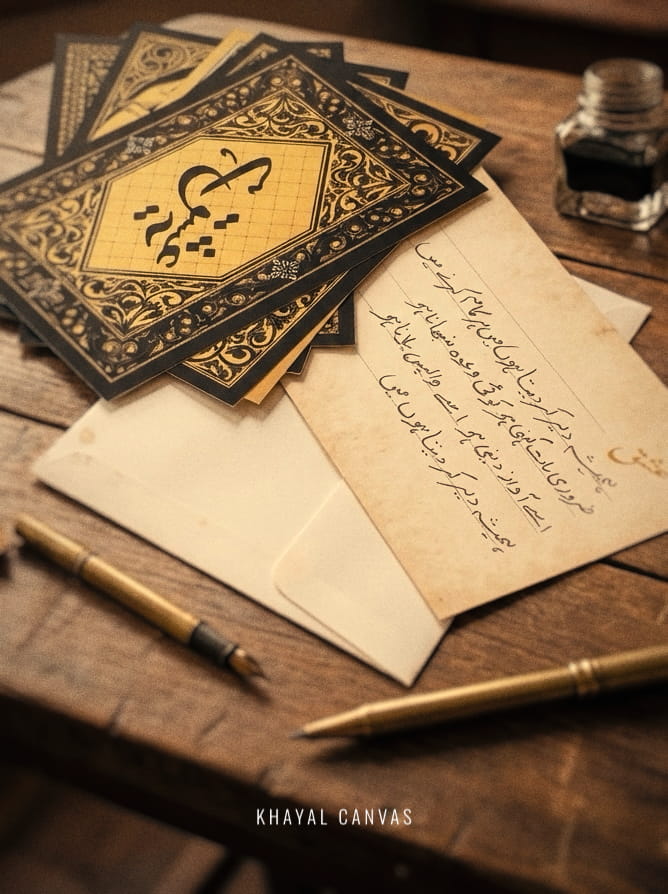 عشق
ہمیشہ دیر کر دیتا ہوں میں ہر کام کرنے میں
ضروری بات کہنی ہو کوئی وعدہ نبھانا ہو
اسے آواز دینی ہو اسے واپس بلانا ہو
ہمیشہ دیر کر دیتا ہوں میں
عشق
KHAYAL CANVAS